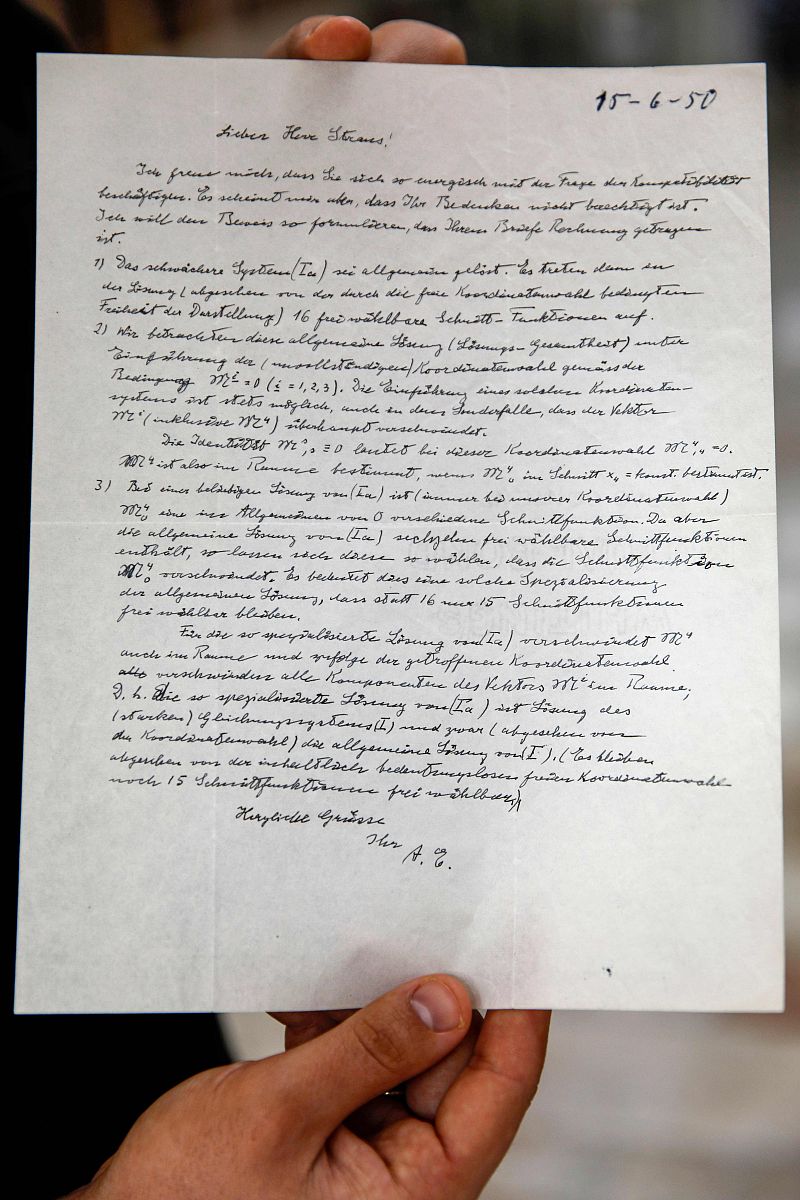 15-6-50
Lieber Herr Straus!
Ich freue mich, dass Sie sich so energisch mit der Frage der Kompatibilität
beschäftigen. Es scheint mir aber, dass Ihr Bedenken nicht berechtigt ist.
Ich will den Beweis so formulieren, dass Ihrem Briefe Rechnung getragen
ist.
1) Das schwächere System (Ia) sei allgemein gelöst. Es treten dann in
der Lösung (abgesehen von der durch die freie Koordinatenwahl bedingten
Freiheit der Darstellung) 16 frei wählbare Schnitt-Funktionen auf.
2) Wir betrachten diese allgemeine Lösung (Lösungs-Gesamtheit) unter
Einführung der (unvollständigen) Koordinatenwahl gemäss der
Bedingung 𝔐^i = 0 (i = 1, 2, 3). Die Einführung eines solchen Koordinaten-
systems ist stets möglich, auch in dem Sonderfalle, dass der Vektor
𝔐^i (inklusive 𝔐^4) überhaupt verschwindet.
Die Identität 𝔐^s,s ≡ 0 lautet bei dieser Koordinatenwahl 𝔐^4,4 = 0.
𝔐^4 ist also im Raume bestimmt, wenn 𝔐^4_0 im Schnitt x4 = konst. bestimmt ist.
3) Bei einer beliebigen Lösung von (Ia) ist (immer bei unserer Koordinatenwahl)
𝔐^4_0 eine im Allgemeinen von 0 verschiedene Schnittfunktion. Da aber
die allgemeine Lösung von (Ia) sechzehn frei wählbare Schnittfunktionen
enthält, so lassen sich diese so wählen, dass die Schnittfunktion
𝔐^4_0 verschwindet. Es bedeutet dies eine solche Spezialisierung
der allgemeinen Lösung, dass statt 16 nur 15 Schnittfunktionen
frei wählbar bleiben.
Für die so spezialisierte Lösung von (Ia) verschwindet 𝔐^4
auch im Raume und zufolge der getroffenen Koordinatenwahl
verschwinden alle Komponenten des Vektors 𝔐^i im Raume,
D. h. die so spezialisierte Lösung von (Ia) ist Lösung des
(starken) Gleichungssystems (I) und zwar (abgesehen von
der Koordinatenwahl) die allgemeine Lösung von (I). (Es bleiben
abgesehen von der inhaltlich bedeutungslosen freien Koordinatenwahl
noch 15 Schnittfunktionen frei wählbar.)
Herzliche Grüsse
Ihr
A. E.